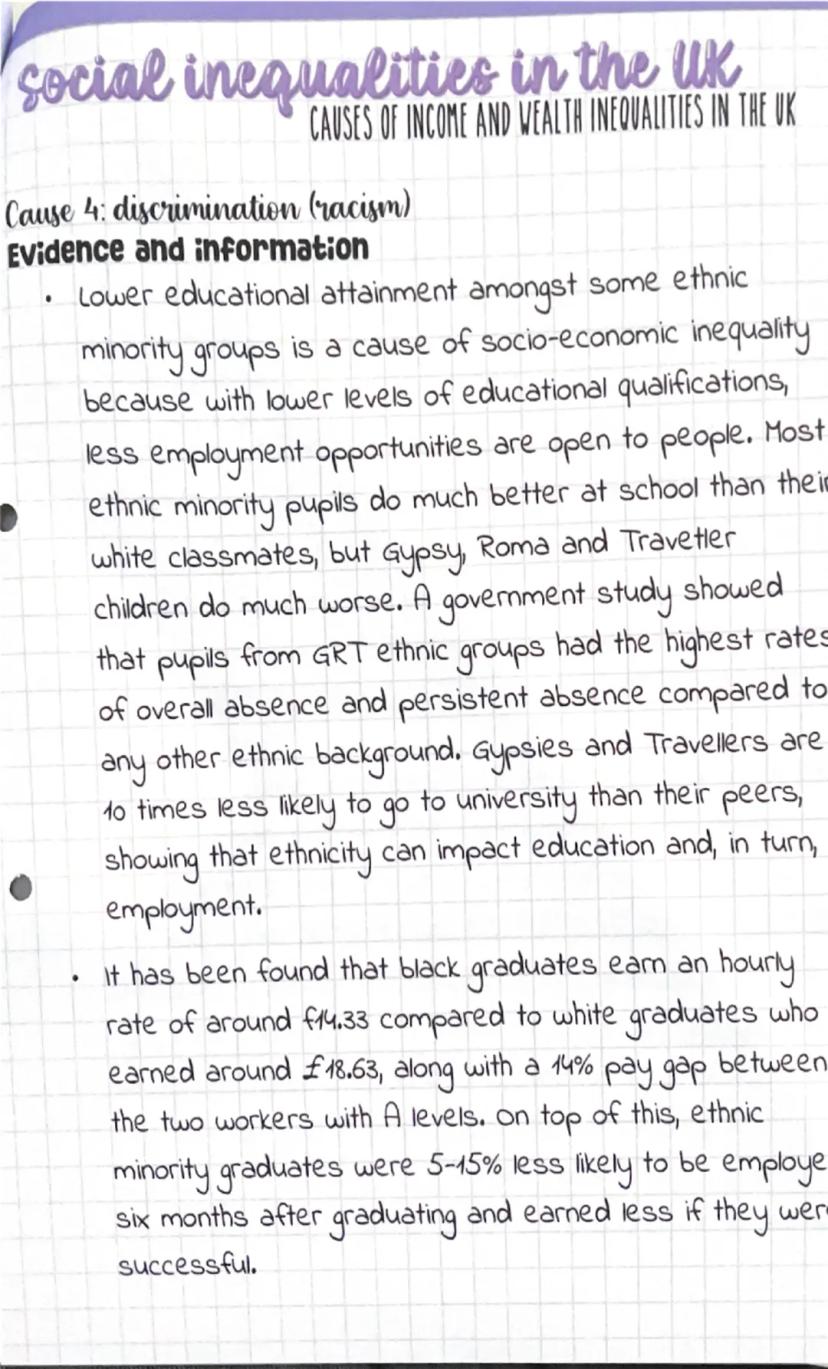 social inequalities in the UK
CAUSES OF INCOME AND WEALTH INEQUALITIES IN THE UK
Cause 4: discrimination (racism)
Evidence and information
• Lower educational attainment amongst some ethnic
minority groups is a cause of socio-economic inequality
because with lower levels of educational qualifications,
less employment opportunities are open to people. Most
ethnic minority pupils do much better at school than their
white classmates, but Gypsy, Roma and Traveller
children do much worse. A government study showed
that pupils from GRT ethnic groups had the highest rates
of overall absence and persistent absence compared to
any other ethnic background. Gypsies and Travellers are
10 times less likely to go to university than their peers,
showing that ethnicity can impact education and, in turn,
employment.
• It has been found that black graduates earn an hourly
rate of around £14.33 compared to white graduates who
earned around £18.63, along with a 14% pay gap between
the two workers with A levels. On top of this, ethnic
minority graduates were 5-15% less likely to be employe
six months after graduating and earned less if they wer
successful.